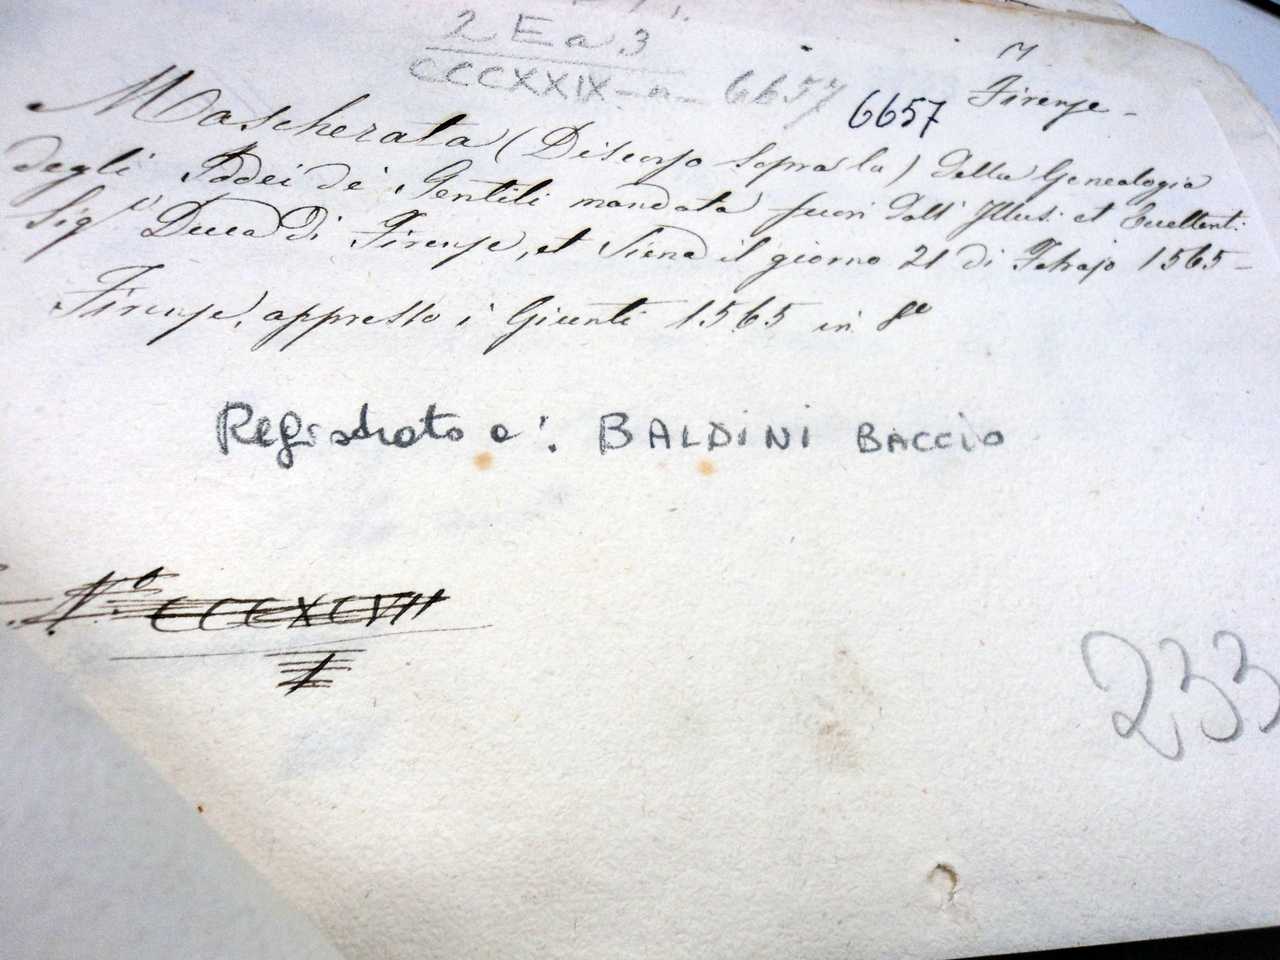 2 E a 3
CCCXXIX - a - 6657
6657 Firenze -
Mascherata (Discorso sopra la) della Genealogia
degli Iddei de' Gentili mandata fuori dall' Illus: et Eccellenti:
Sig.r Duca di Firenze, et Siena il giorno 21 di Febrajo 1565 -
Firenze, appresso i Giunti 1565 in 8o
Registrato a: BALDINI BACCIO
N.o CCCXCVII
233